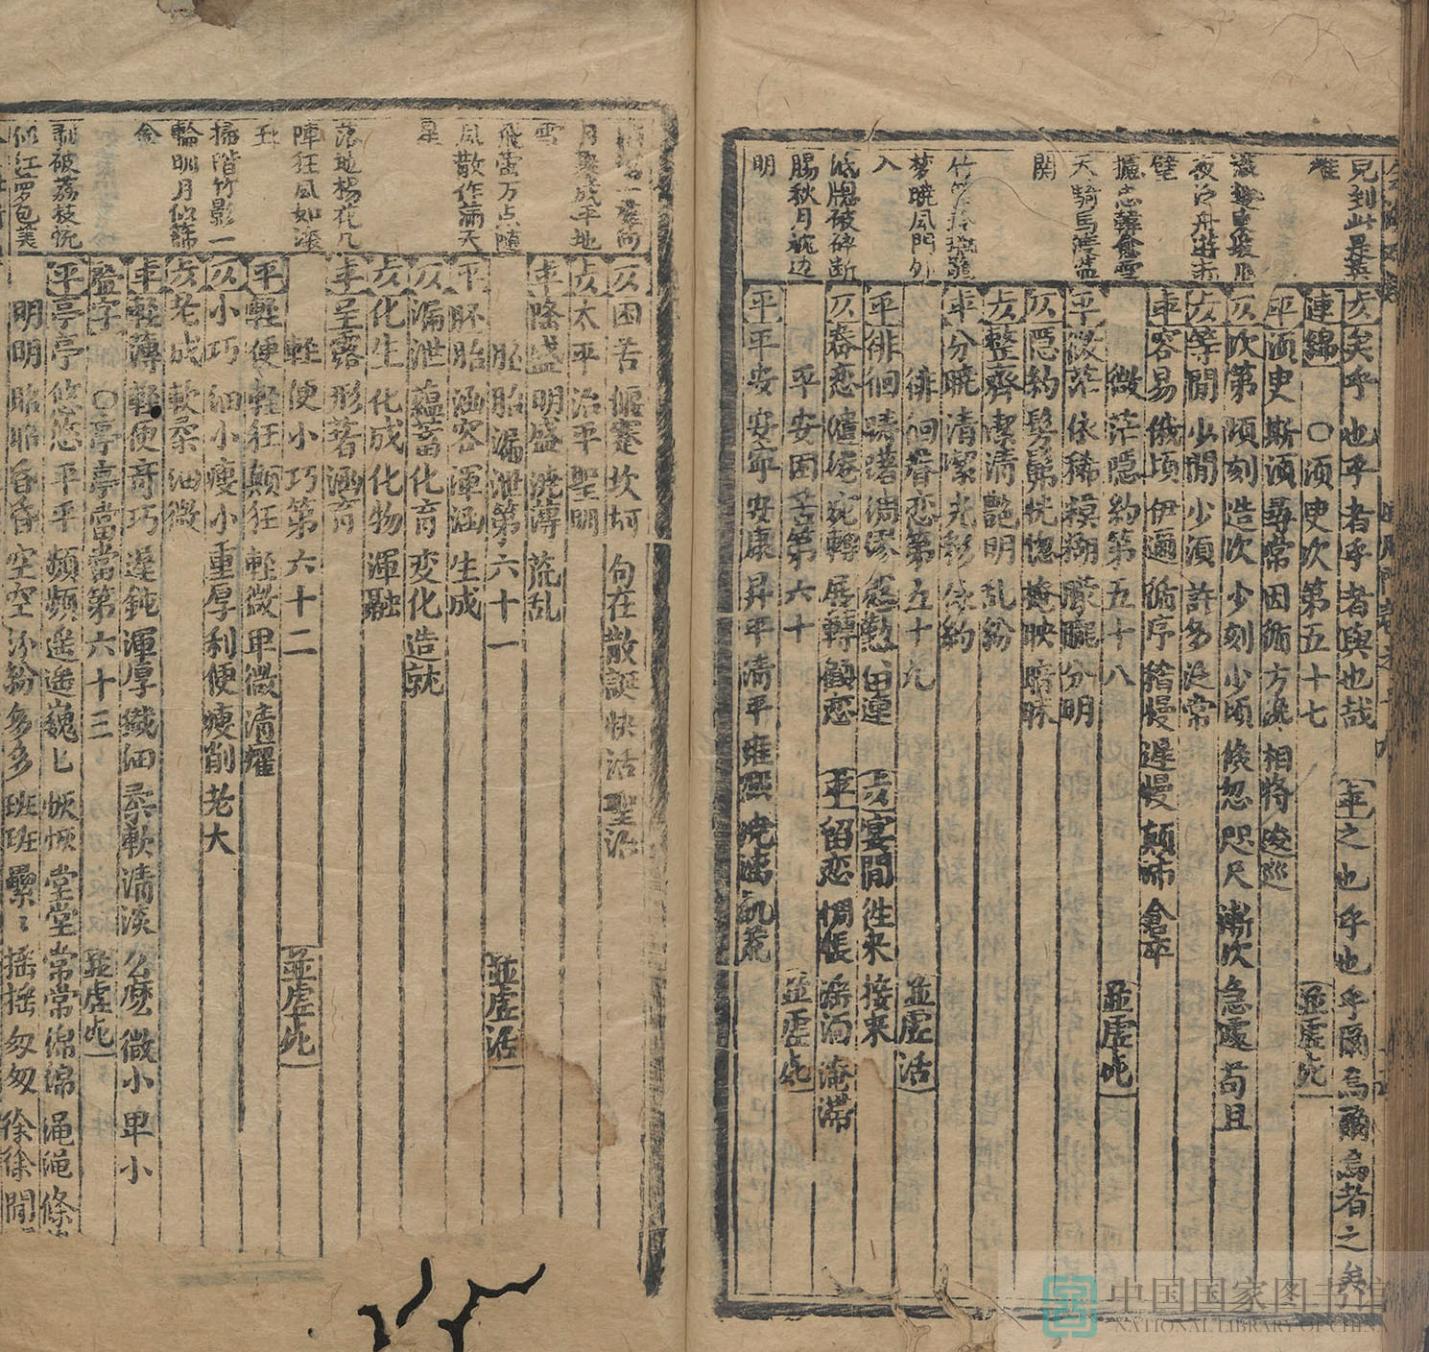 見到此是英
雄
夜泛舟遊赤
壁
天騎馬濟藍
関
竹
梦曉風門外
入
腸秋月枕边
明
仄矣乎也乎者乎者與也哉 平之也乎也乎爾焉爾焉者之矣
連綿 〇須臾次第五十七 並虛死
平須臾斯須尋常因循方決相將逡巡
仄次第頃刻造次少刻少頃倏忽咫尺漸次急遽苟且
仄等閒少間少須許多泛常
平容易俄頃伊邇循序稽慢遲慢顛沛倉卒
微茫隱約第五十八 並虛死
平微茫依稀模糊朦朧分明
仄隱約髣髴恍惚掩映暗昧
仄整齊潔清艷明乱紛
平分曉清潔光彩依約
徘徊眷恋第五十九 並虛活
平徘徊 仄宴閒往来接来
仄眷恋 宛轉展轉顧恋 平留恋惆悵 淹滯
平安困苦第六十 並虛死
平平安安寧安康昇平清平雍熙 飢荒
月 成平地
雪
飛當万点随
風散作滿天
星
落地楊花几
陣狂風如滚
丑
掃階竹影一
輪明月似篩
金
剥破荔枝恍
似江罗包美
仄困苦偃蹇坎坷 句在散誕快活聖治
仄太平治平聖明
平隆盛明盛澆薄荒乱
胚胎漏泄第六十一 並虛活
平胚胎涵容渾涵生成
仄漏泄蘊蓄化育变化造就
仄化生化成化物渾融
平呈露形著涵育
軽便小巧第六十二 並虛死
平軽便軽狂顛狂軽微卑微清癯
仄小巧細小瘦小重厚利便瘦削老大
仄老成軟柔細微
平軽薄軽便奇巧遲鈍渾厚纖細柔軟清淡么麽微小卑小
疊字 〇亭亭當當第六十三 並虛死
平亭亭悠悠平平頻頻遥遥巍匕恢恢堂堂常常綿綿
明明昭昭昏昏空空紛紛多多班班纍〻揺揺匆匆徐徐
中国国家图书馆
NATIONAL LIBRARY OF CHINA